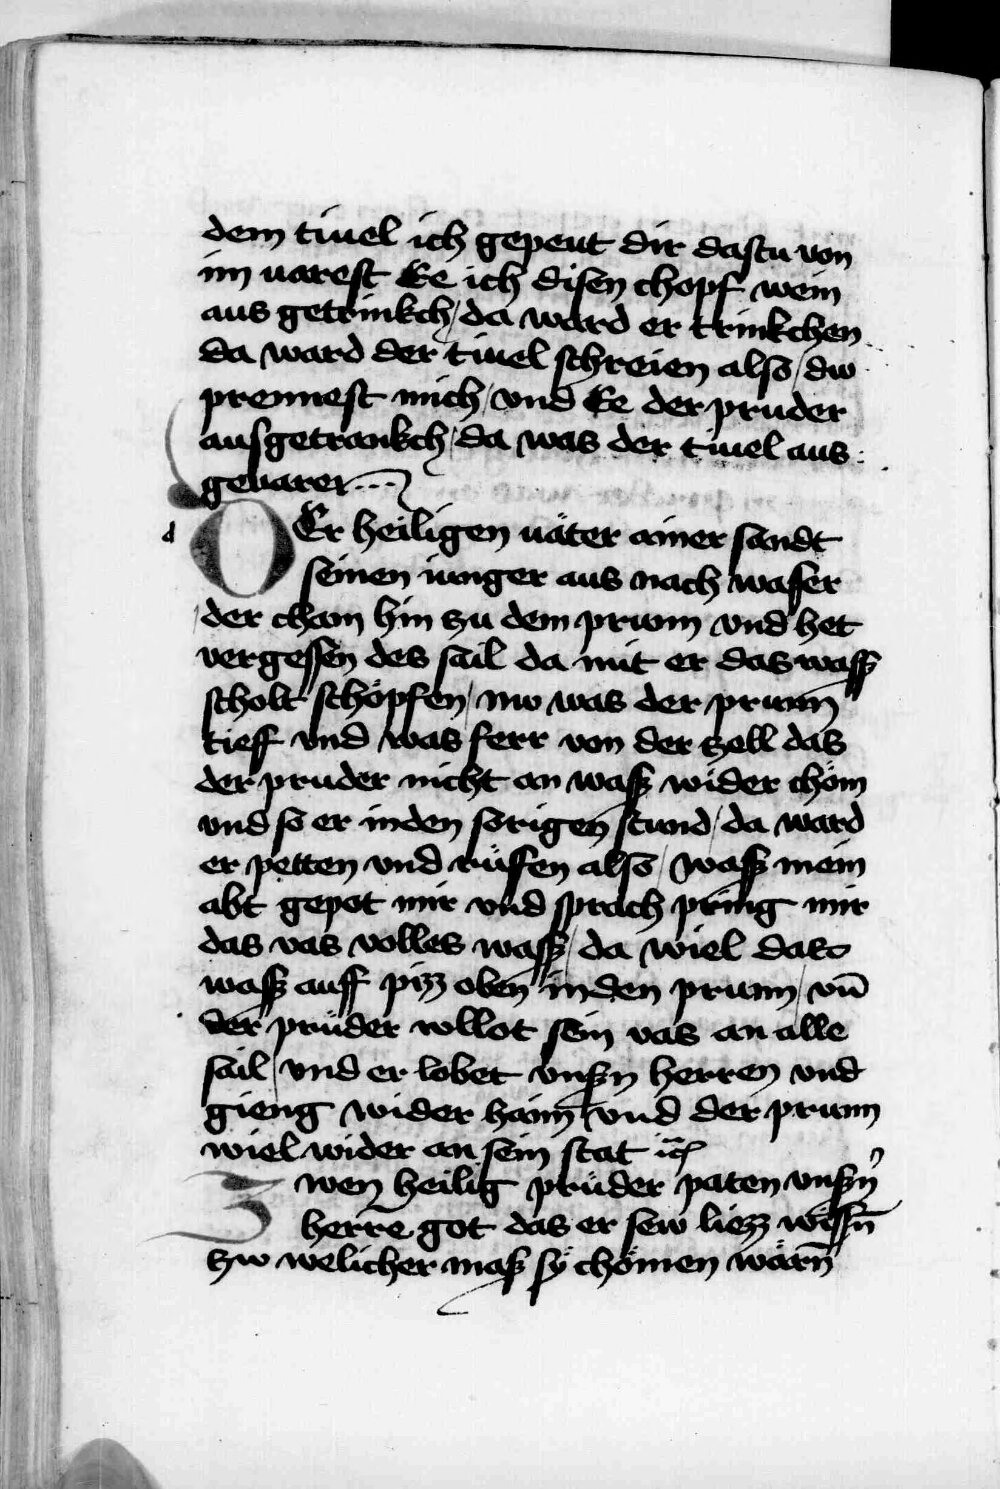 dem tiuel ich gepeut dir dastu von
im uarest Ee ich disen chopf wein
aus getrinkch / da ward er trinkchen
da ward der tiuel schreien also / dw
prennest mich / vnd Ee der pruder
ausgetrankch / da was der tiuel aus
geuaren
d
DEr heiligen uäter ainer sandt
seinen iunger aus nach wasser
der cham hin zu dem prunn vnd het
vergessen des sail da mit er das wass
scholt schöpfen / nw was der prunn
tieff vnd was ferr von der zell das
der pruder nicht an wass wider chöm
vnd so er in den sorigen stund / da ward
er petten vnd rüffen also / wass mein
abt gepot mir vnd sprach pring mir
das vas volles wass / da wiel das
wass auff pizz oben in den prunn / vn̄
der prüder vollot sein vas an alle
sail / vnd er lobet vnsn herren vnd
gieng wider haim / vnd der prunn
wiel wider an sein stat
Zwen heilig prüder paten vnsn
herre got das er sew liezz wissn̄
zw welicher mass sy chömen wärn̄